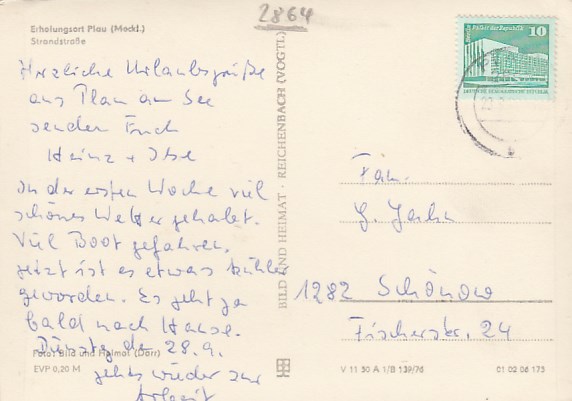 2864
Erholungsort Plau (Meckl.)
Strandstraße
Herzliche Urlaubsgrüße
aus Plau am See
senden Euch
Heinz + Ilse
In der ersten Woche viel
schönes Wetter gehabt.
Viel Boot gefahren.
jetzt ist es etwas kühler
geworden. Es geht ja
bald nach Hause.
Dienstag den 28.9.
gehts wieder zur
Arbeit
Foto: Bild und Heimat (Darr)
EVP 0,20 M
BILD UND HEIMAT · REICHENBACH (VOGTL)
10
Palast der Republik
Fam.
G.
1282 Schönow
Fischerstr. 24
V 11 50 A 1/B 139/76
01 02 06 173